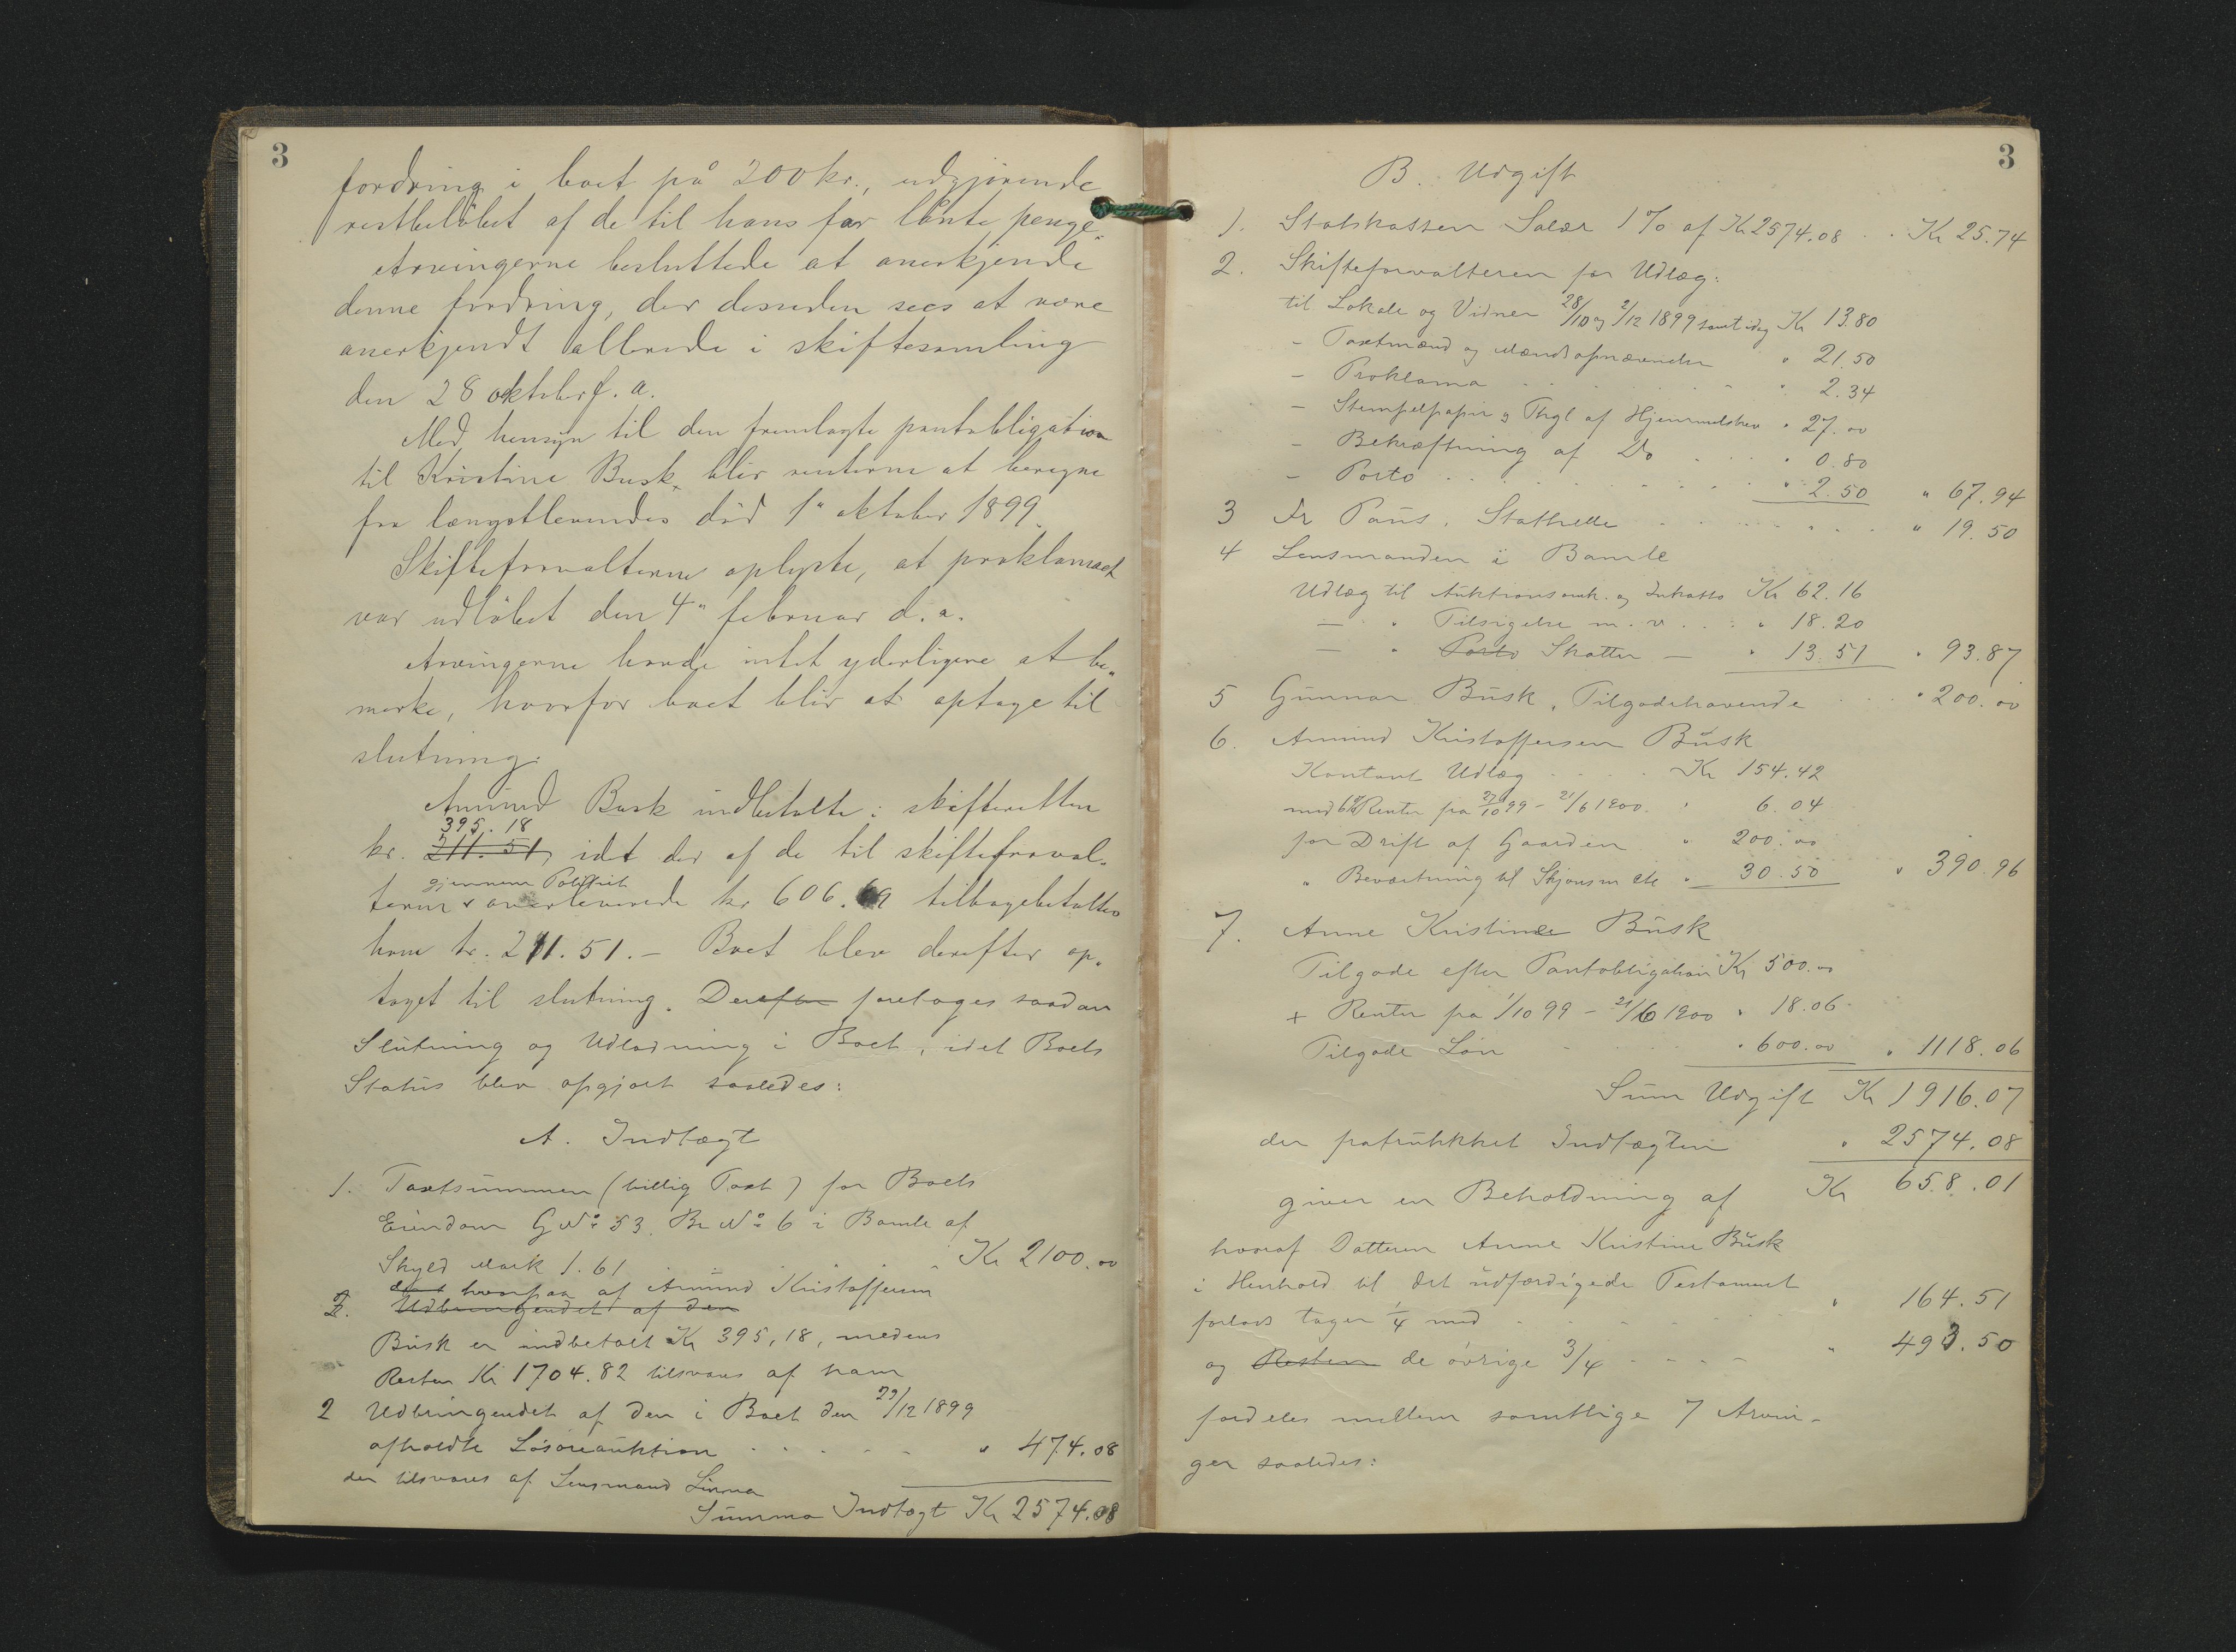 3
fordring i boet på 200 kr., udgjørende
restbeløbet af de til hans far lånte penge.
Arvingerne besluttede at anerkjende
denne fordring, der desuden sees at være
anerkjendt allerede i skiftesamling
den 28 oktober f. a.
Med hensyn til den fremlagte pantobligation
til Kristine Busk, blir renterne at beregne
fra længstlevendes død 1" oktober 1899.
Skifteforvalteren oplyste, at proklamaet
var udløbet den 4" februar d. a.
Arvingerne havde intet yderligere at be„
merke, hvorfor boet blir at optage til
slutning.
Anund Busk indbetalte i skifteretten
395.18
kr. 211.51, idet der af de til skifteforval„
gjennem Politiet
teren overleverede kr 606.69 tilbagebetaltes
ham kr. 211.51. – Boet blev derefter op„
taget til slutning. Derefter foretoges saadan
Slutning og Udlodning i Boet, idet Boets
Status blev opgjort saaledes:
A. Indtægt
1. Taxtsummen (billig Taxt) for Boets
Eiendom G No 53 Br No 6 i Bamle af
Skyld Mark 1.61 Kr 2100.00
hvorpaa af Anund Kristoffersen
2. Udbringendet af den
Busk er indbetalt Kr 395,18, medens
Resten Kr 1704.82 tilsvares af ham
2 Udbringendet af den i Boet den 29/12 1899
afholdte Løsøreauktion . . . . . " 474.08
der tilsvares af Lensmand Linna
Summa Indtægt Kr 2574.08
3
B. Udgift
1. Statskassen Salær 1% af Kr 2574.08 . . Kr 25.74
2. Skifteforvalteren for Udlæg:
til Lokale og Vidner 28/10 og 2/12 1899 samt idag Kr 13.80
– Taxtmænd og Mænds opnævnelse " 21.50
– Proklama . . . . . . . " 2.34
– Stempelpapir og Thgl af Hjemmelsbrev " 27.00
– Bekræftning af Do . . . " 0.80
– Porto . . . . . . . " 2.50 " 67.94
3 Dr Paus, Stathelle . . . . . . . " 19.50
4 Lensmanden i Bamle
Udlæg til Auktionsomk. og Inkasso Kr 62.16
— " Tilsigelse m. v. . . : " 18.20
— " Porto Skatter — " 13.51 " 93.87
5 Gunnar Busk, Tilgodehavende . . . " 200.00
6. Anund Kristoffersen Busk
Kontant Udlæg . . . . Kr 154.42
med 6% Renter fra 27/10 99 – 21/6 1900. " 6.04
for Drift af Gaarden " 200.00
" Bevertning til Skjønsm etc " 30.50 " 390.96
7. Anne Kristine Busk
Tilgode efter Pantobligation Kr 500.00
+ Renter fra 1/10 99 – 21/6 1900 " 18.06
Tilgode Løn . . . . . " 600.00 " 1118.06
Sum Udgift Kr 1916.07
der fratrukket Indtægten " 2574.08
giver en Beholdning af Kr 658.01
hvoraf Datteren Anne Kristine Busk
i Henhold til det udfærdigede Testament
forlods tager 1/4 med . . . . . . " 164.51
og Resten de øvrige 3/4 . - - - " 493.50
fordeles mellem samtlige 7 Arvin-
ger saaledes: